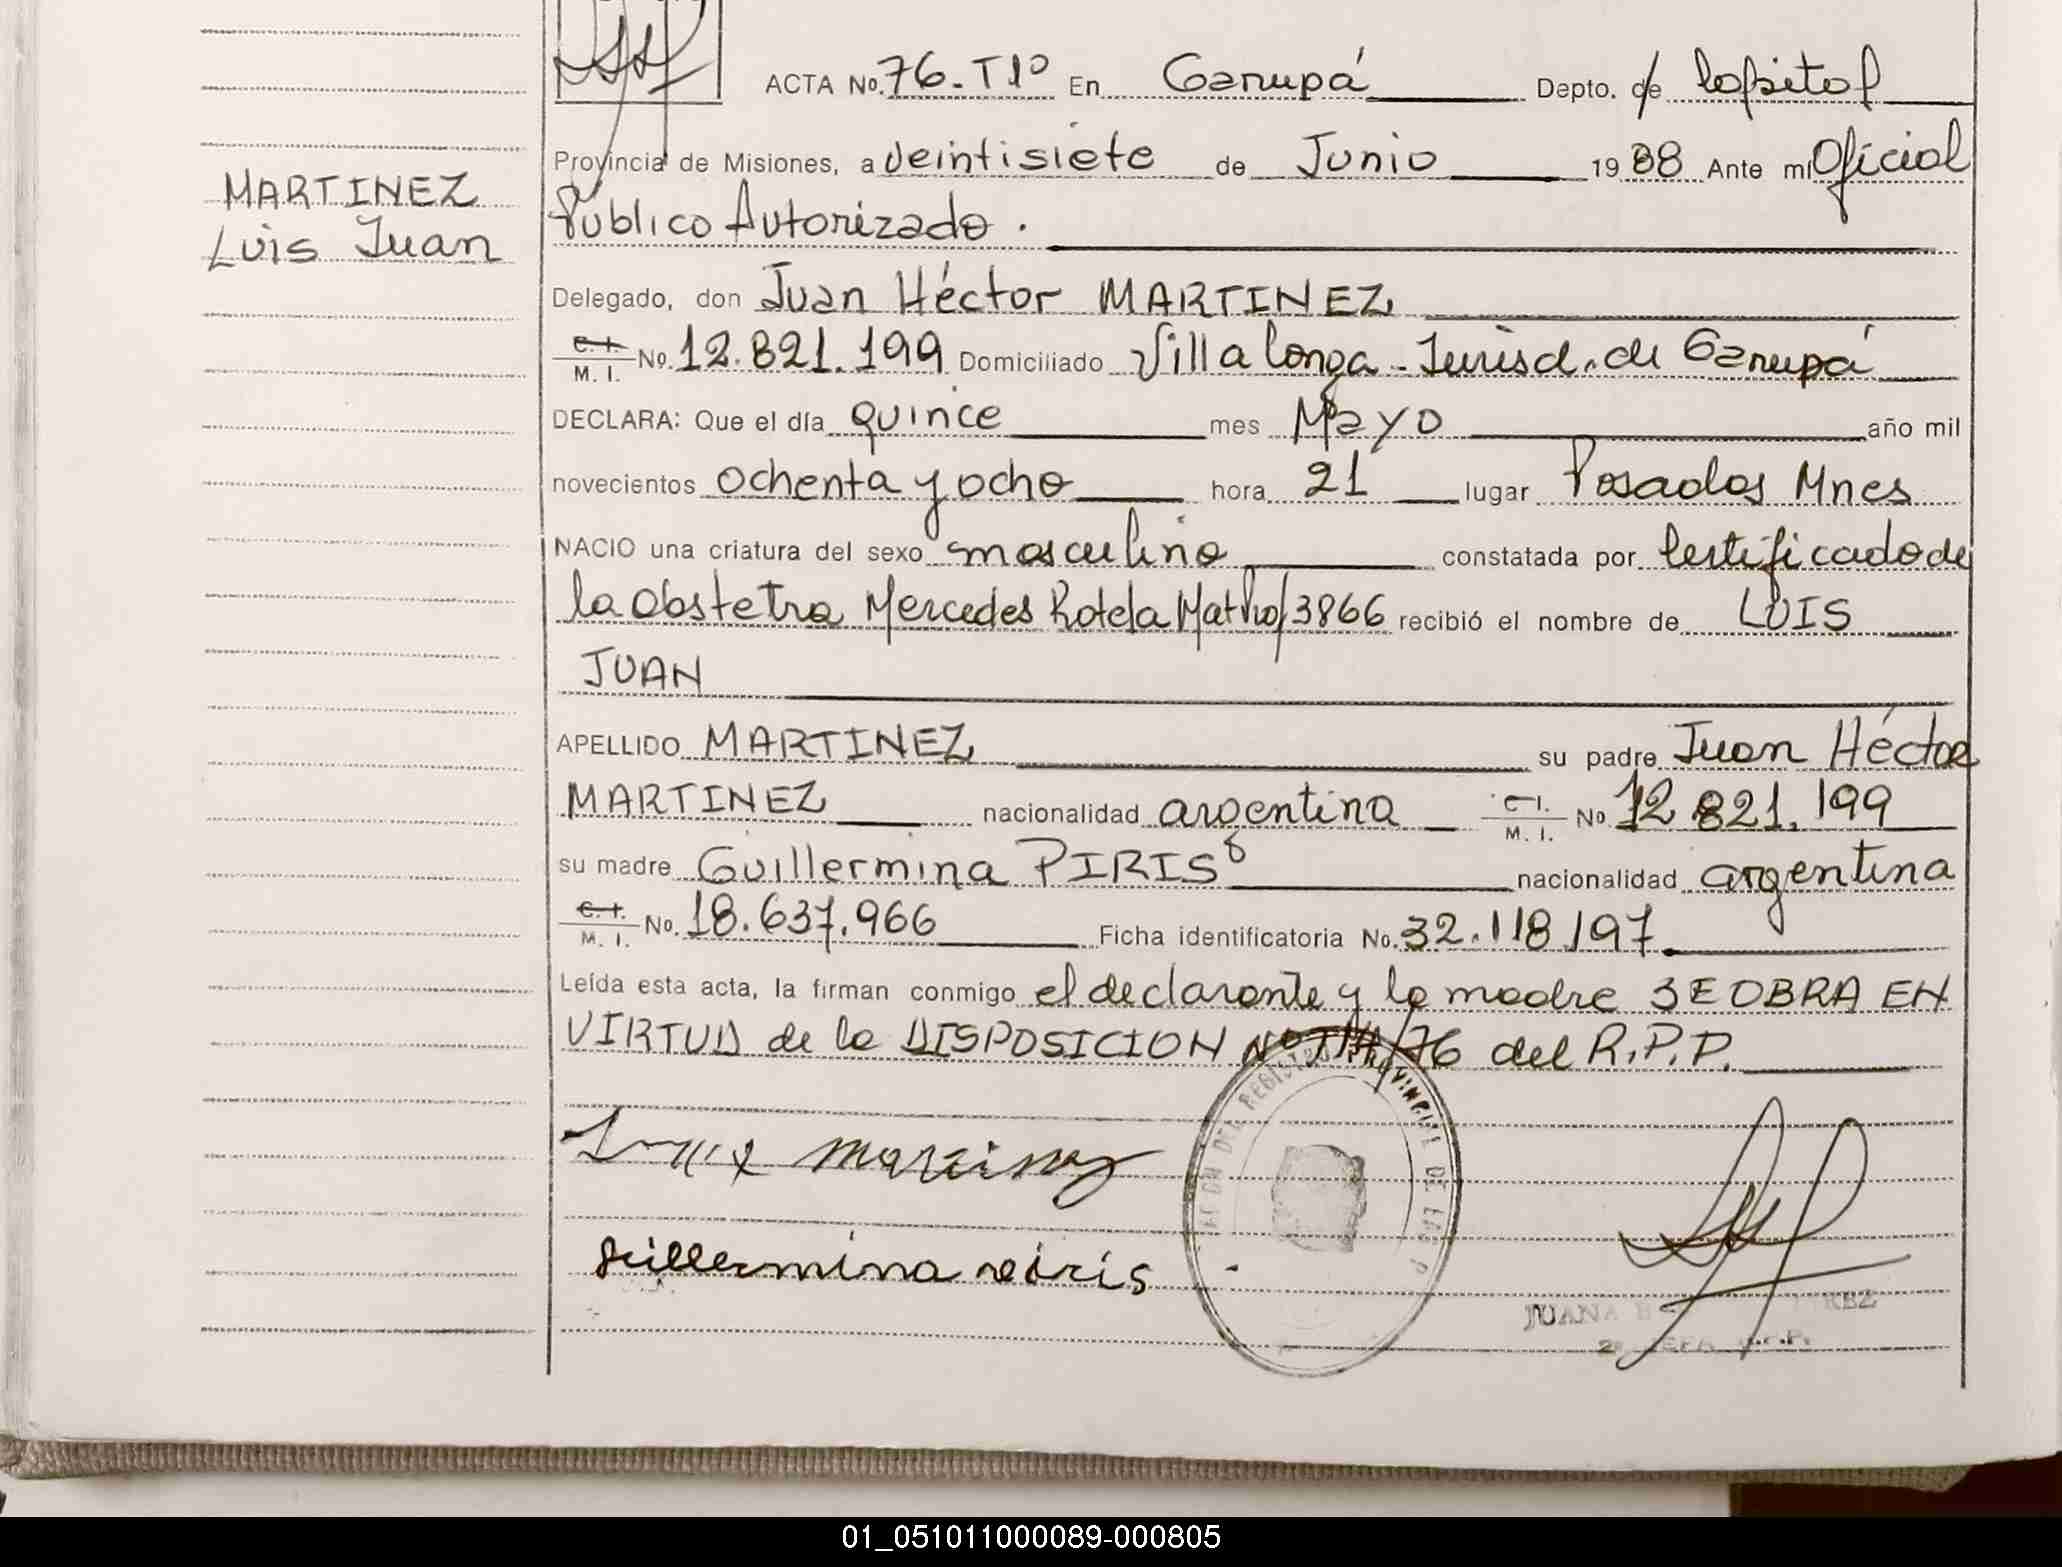 ACTA No. 76-T1º En Garupá Depto. de Capital
MARTINEZ
Luis Juan
Provincia de Misiones, a veintisiete de Junio 1988 Ante mi Oficial
Público Autorizado.
Delegado, don Juan Héctor MARTINEZ
C. I. M. I. No. 12.821.199 Domiciliado Villa Longa - Jurisd. de Garupá
DECLARA: Que el día quince mes Mayo año mil
novecientos ochenta y ocho hora 21 lugar Posadas Mnes
NACIO una criatura del sexo masculino constatada por Certificado de
la Obstetra Mercedes Rotela Mat Prof 3866 recibió el nombre de LUIS
JUAN
APELLIDO MARTINEZ su padre Juan Héctor
MARTINEZ nacionalidad argentina C. I. M. I. No 12 821.199
su madre Guillermina PIRIS nacionalidad argentina
C. I. M. I. No. 18.637.966 Ficha identificatoria No. 32.118.197
Leída esta acta, la firman conmigo el declarante y la madre SE OBRA EN
VIRTUD de la DISPOSICION Nº /76 del R.P.P.
Guillermina
JUANA
01_051011000089-000805